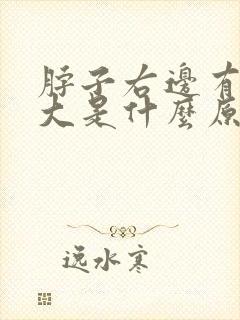 脖子右邊有
大是什麼原
逸水寒